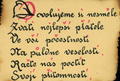 Dovolujeme si nesměle
Zváti nejlepší přátele
Do vší počestnosti
Na půlnoc veselosti
Račte nás poctít
Svojí přítomností